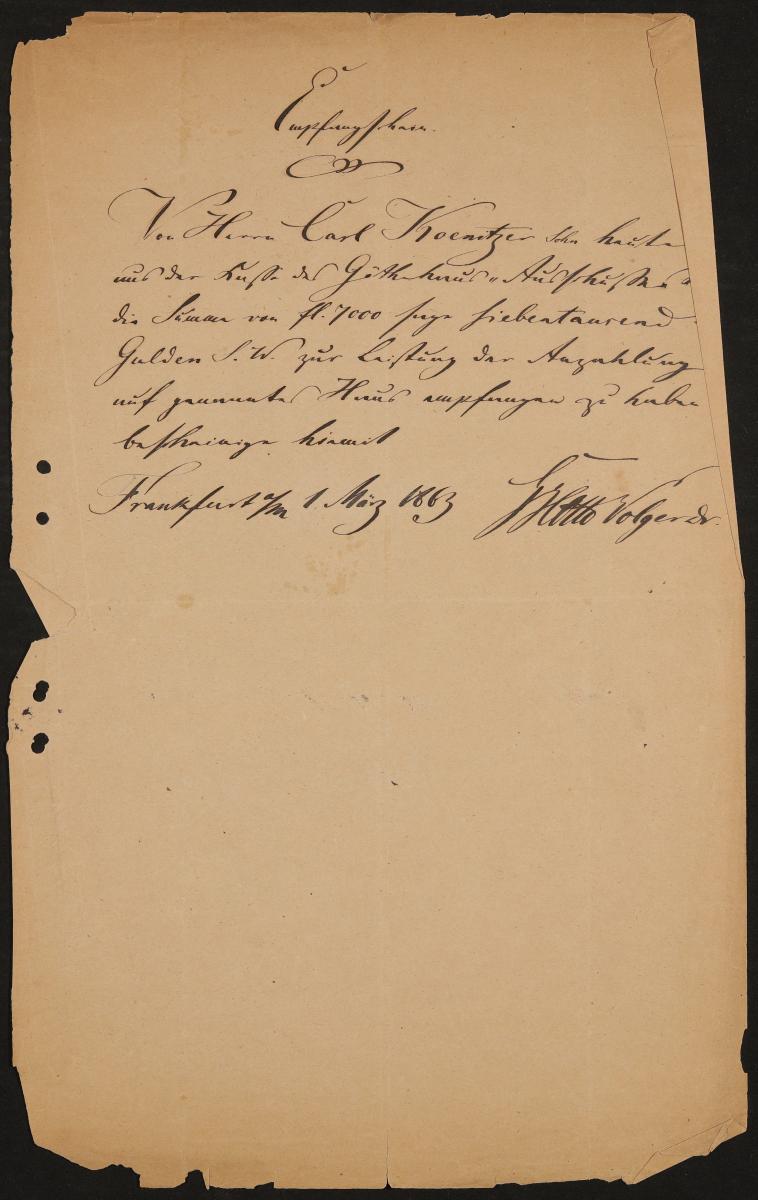 Empfangschein.
Von Herrn Carl Koenitzer Sohn heute
aus der Kasse des Göthehaus „Ausschusses“
die Summe von fl. 7000 sage siebentausend
Gulden S. W. zur Leistung der Anzahlung
auf genanntes Haus empfangen zu haben
bescheinige hiemit
Frankfurt a/M 1. März 1863 GHOtto Volger Dr.